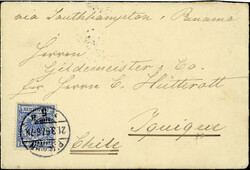 via Southhampton, Panama
Herren
Gildemeister & Co.
für Herren C. Hütterott
Iquique
Chile